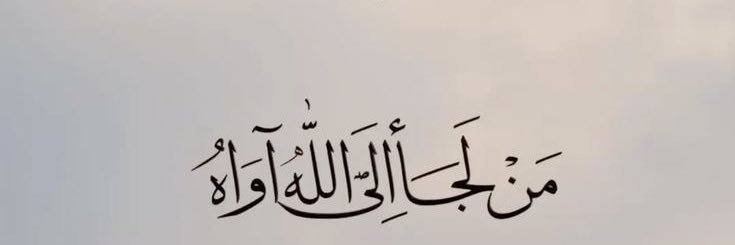 مَنْ لَجَأَ إِلَى اللّٰهُ آوَاهُ